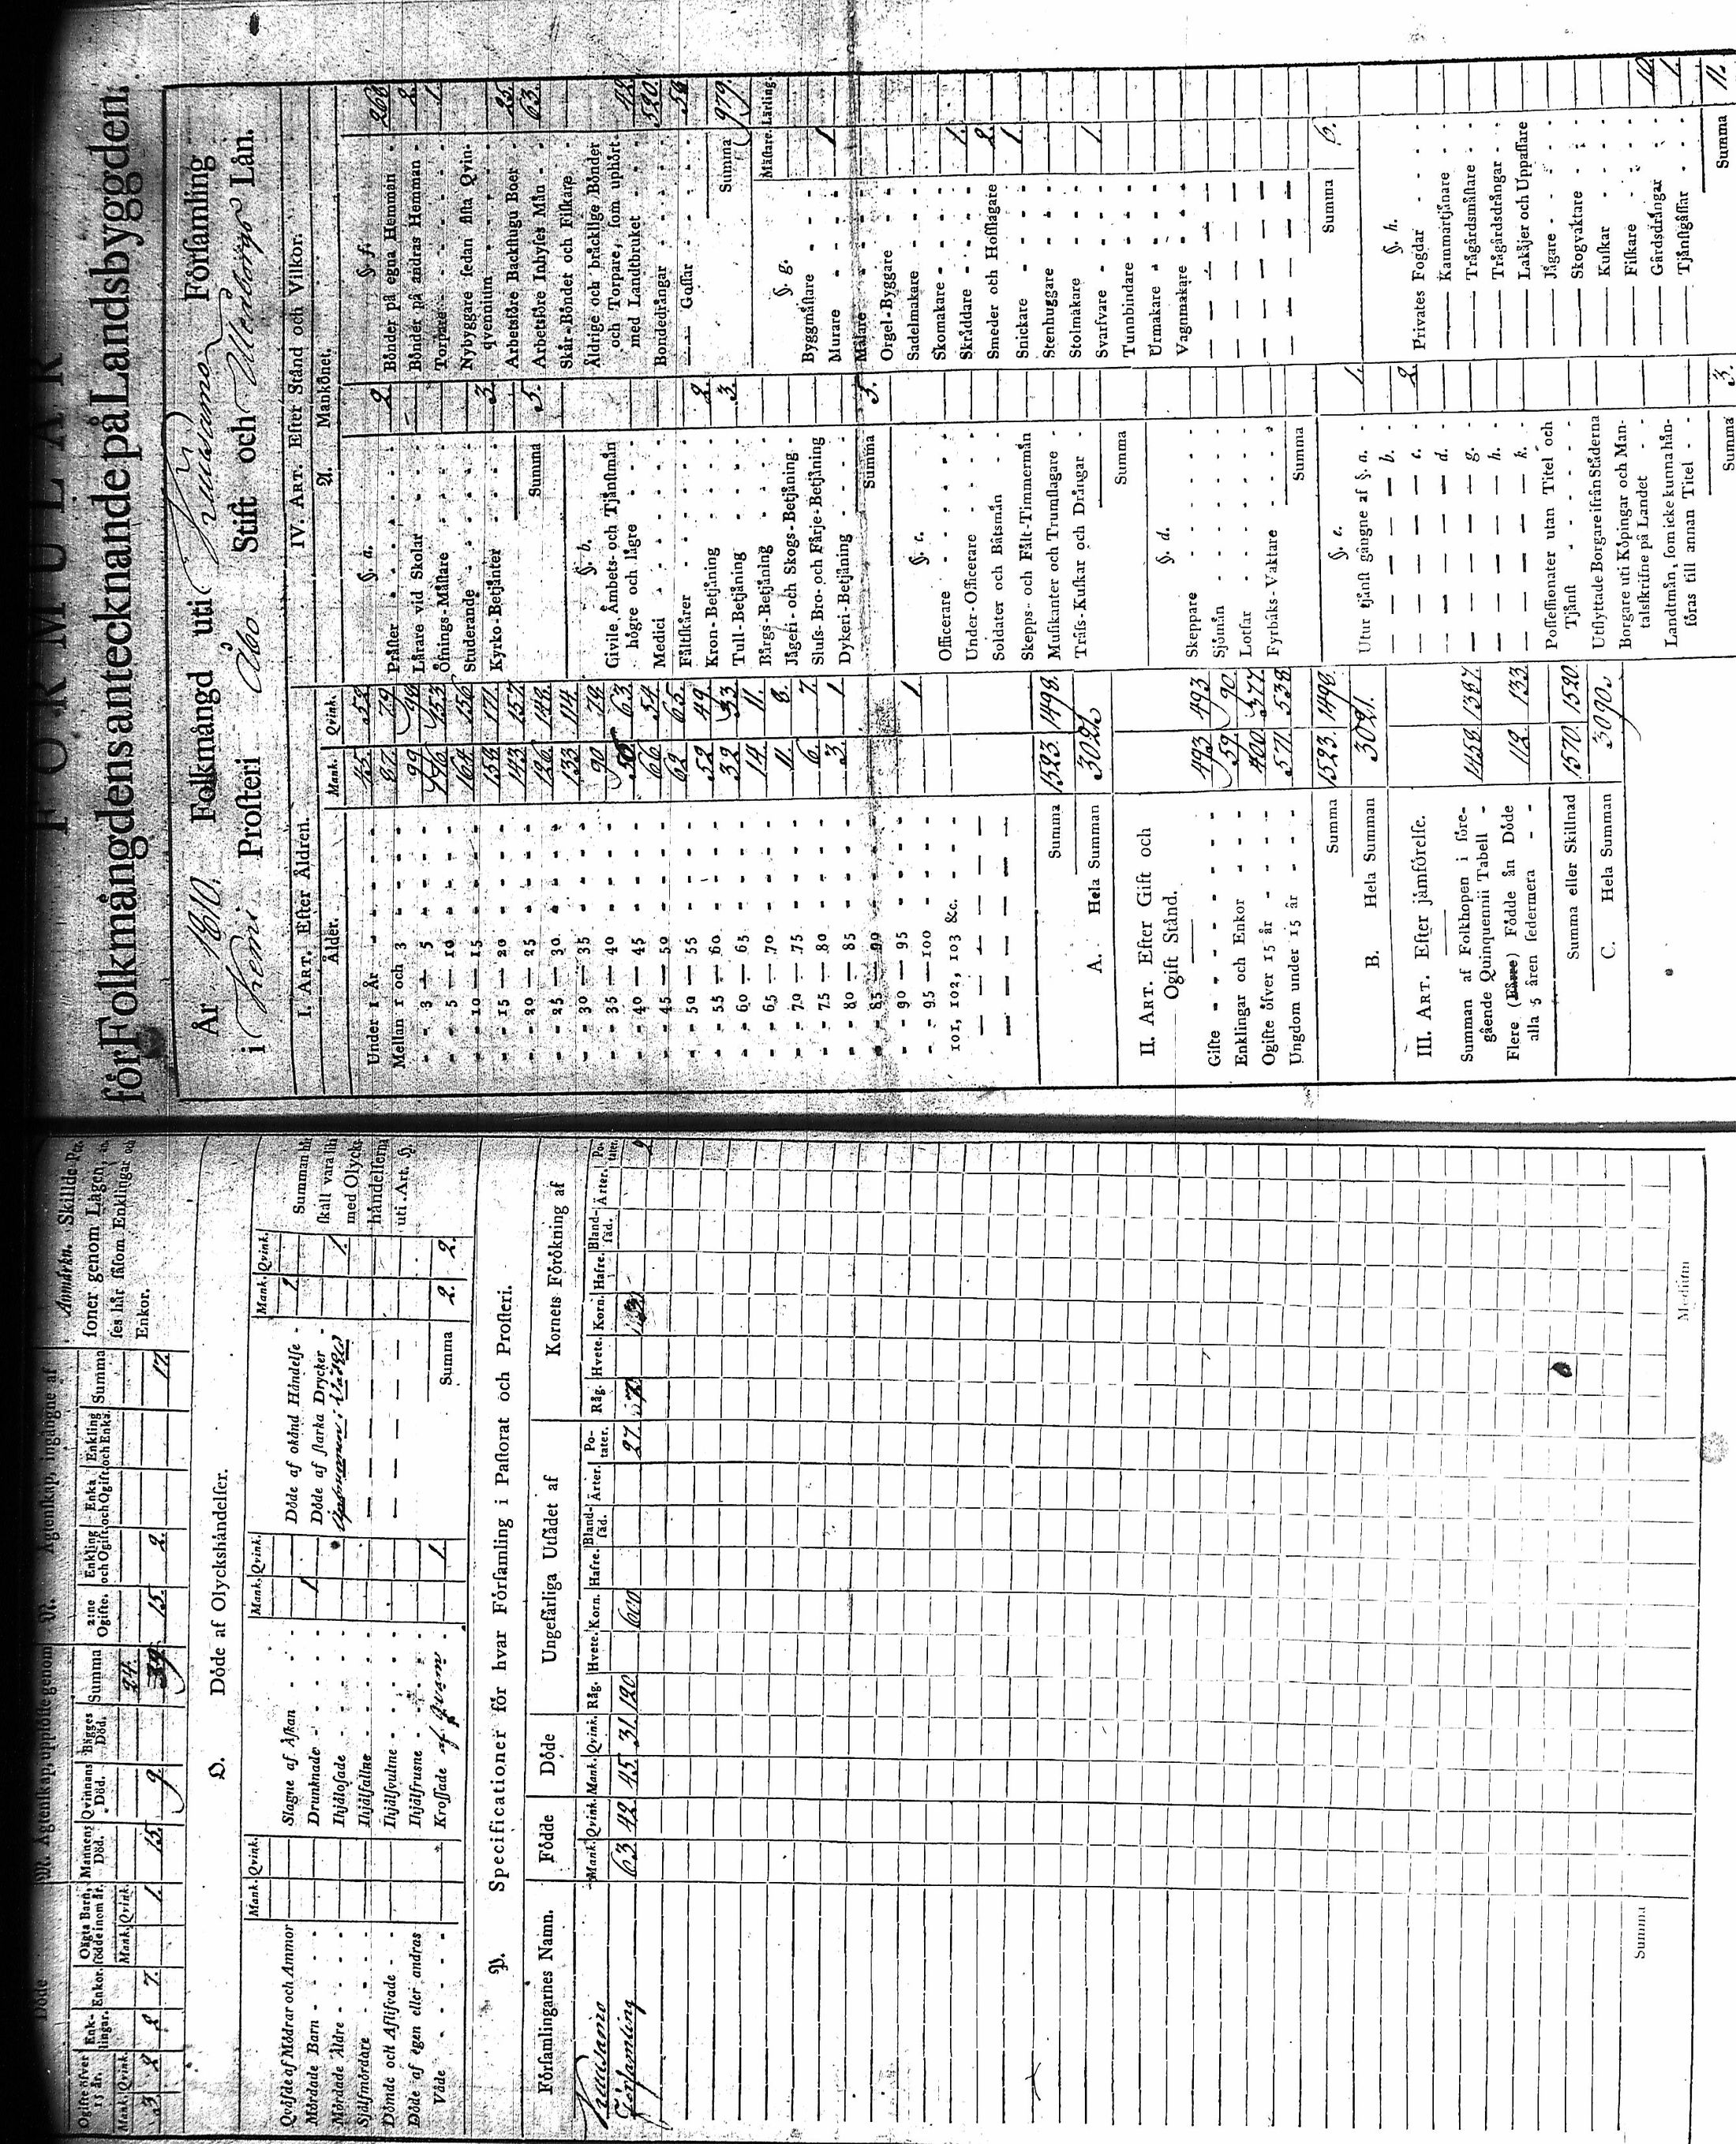 FORMULÄR
för Folkmängdens antecknande på Landsbyggden.
År 1810. Folkmängd uti Kuusamo Församling
i Kemi Prosteri Åbo Stift och Uleåborgs Län.
I. ART. Efter Åldren.
Ålder. Mank. Qvink.
Under 1 År 45. 52.
Mellan 1 och 3 87. 79.
3 — 5 99
5 — 10 153
10 — 15 164 156
15 — 20 154 171
20 — 25 143 157
25 — 30 126 148
30 — 35 133 114
35 — 40 90 79
40 — 45 63
45 — 50 66 54
50 — 55 62 65
55 — 60 52 49
60 — 65 32 33
65 — 70 14 11.
70 — 75 11. 8.
75 — 80 6. 7
80 — 85 3. 1
85 — 90
90 — 95 1.
95 — 100
101, 102, 103 &c.
Summa 1523. 1498.
A. Hela Summan 3021.
II. ART. Efter Gift och
Ogift Stånd.
Gifte 493 493
Enklingar och Enkor 59. 90.
Ogifte öfver 15 år 400 377
Ungdom under 15 år 571. 538
Summa 1523. 1498.
B. Hela Summan 3021.
III. ART. Efter jämförelse.
Summan af Folkhopen i före-
gående Quinquennii Tabell 1458 1387
Flere (Färre) Födde än Döde
alla 5 åren sedermera 112. 133
Summa eller Skillnad 1570. 1520.
C. Hela Summan 3090.
IV. ART. Efter Stånd och Vilkor.
A. Mankönet.
§. a.
Präster 2
Lärare vid Skolar
Öfnings-Mästare
Studerande
Kyrko-Betjänter 3.
Summa 5.
§. b.
Civile, Ämbets- och Tjänstmän
högre och lägre
Medici
Fältskärer
Kron-Betjäning 2.
Tull-Betjäning 3.
Bärgs-Betjäning
Jägeri- och Skogs-Betjäning
Sluss-Bro- och Färje-Betjäning
Dykeri-Betjäning
Summa 5.
§. c.
Officerare
Under-Officerare
Soldater och Båtsmän
Skepps- och Fält-Timmermän
Musikanter och Trumslagare
Träss-Kuskar och Drängar
Summa
§. d.
Skeppare
Sjömän
Lotsar
Fyrbåks-Vaktare
Summa
§. e.
Utur tjänst gångne af §. a. 1.
— — — b. 2
— — — c.
— — — d.
— — — g.
— — — h.
— — — k.
Possessionater utan Titel och
Tjänst
Utflyttade Borgare ifrån Städerna
Borgare uti Köpingar och Man-
talsskrifne på Landet
Landtmän, som icke kunna hän-
föras till annan Titel
Summa 3.
§. f.
Bönder på egna Hemman 268
Bönder på andras Hemman 2.
Torpare 1.
Nybyggare sedan sista Qvin-
qvennium
Arbetsföre Backstugu Boer 25.
Arbetsföre Inhyses Män 63.
Skär-Bönder och Fiskare
Åldrige och bräcklige Bönder
och Torpare, som uphört
med Landtbruket
Bondedrängar 520.
— Gossar
Summa 979.
§. g. Mästare. Lärling.
Byggmästare
Murare 1
Målare
Orgel-Byggare
Sadelmakare
Skomakare 1.
Skräddare 2
Smeder och Hofslagare 1
Snickare
Stenhuggare
Stolmakare 1
Svarfvare
Tunnbindare
Urmakare
Vagnmakare
Summa 6.
§. h.
Privates Fogdar
— Kammartjänare
— Trägårdsmästare
— Trägårdsdrängar
— Lakäjer och Uppassare
— Jägare
— Skogvaktare
— Kuskar
— Fiskare
— Gårdsdrängar 10.
— Tjänstgåssar 1.
Summa 11.
Döde
M. Ägtenskap, uplöste genom
N. Ägtenskap, ingångne af
Ogifte öfver 15 år. Enk-lingar. Enkor. Oägta Barn, födde inom år. Mannens Död. Qvinnans Död. Bägges Död. Summa
Mank. Qvink. Mank. Qvink.
3 2 2 7. 1. 15. 9. 24.
2:ne Ogifte. Enkling och Ogift. Enka och Ogift. Enkling och Enka. Summa
15. 2. 17.
Anmärkn. Skillde Per-
soner genom Lagen,
ses här såsom Enklingar och
Enkor.
O. Döde af Olyckshändelser.
Mank. Qvink. Mank. Qvink. Mank. Qvink.
Qväfde af Mödrar och Ammor
Mördade Barn
Mördade Äldre
Självmördare
Dömde och Aflifvade
Döde af egen eller andras
Våde
Slagne af Åskan
Drunknade 1
Ihjälosade
Ihjälfallne
Ihjälsvultne
Ihjälfrusne
Krossade af 1
Döde af okänd Händelse 1
Döde af starka Drycker
1
Summa 2. 2.
Summan
skall vara lik
med Olycks-
händelserna
uti Art. §.
P. Specificationer för hvar Församling i Pastorat och Prosteri.
Församlingarnes Namn. Födde Döde Ungefärliga Utsädet af Kornets Förökning af
Mank. Qvink. Mank. Qvink. Råg. Hvete. Korn. Hafre. Bland-säd. Ärter. Po-tater. Råg. Hvete. Korn. Hafre. Bland-säd. Ärter. Po-tater.
Kuusamo
Församling 63 42 45 31. 120 600 27
Summa
Medium